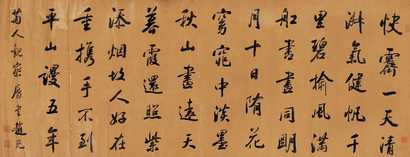 快霽一天清
淑氣健帆千
里碧榆風滿
船書畫同明
月十日隨花
窈窕中淡墨
秋山畫遠天
暮霞還照紫
添烟故人好在
重攜手不到
平山謾五年